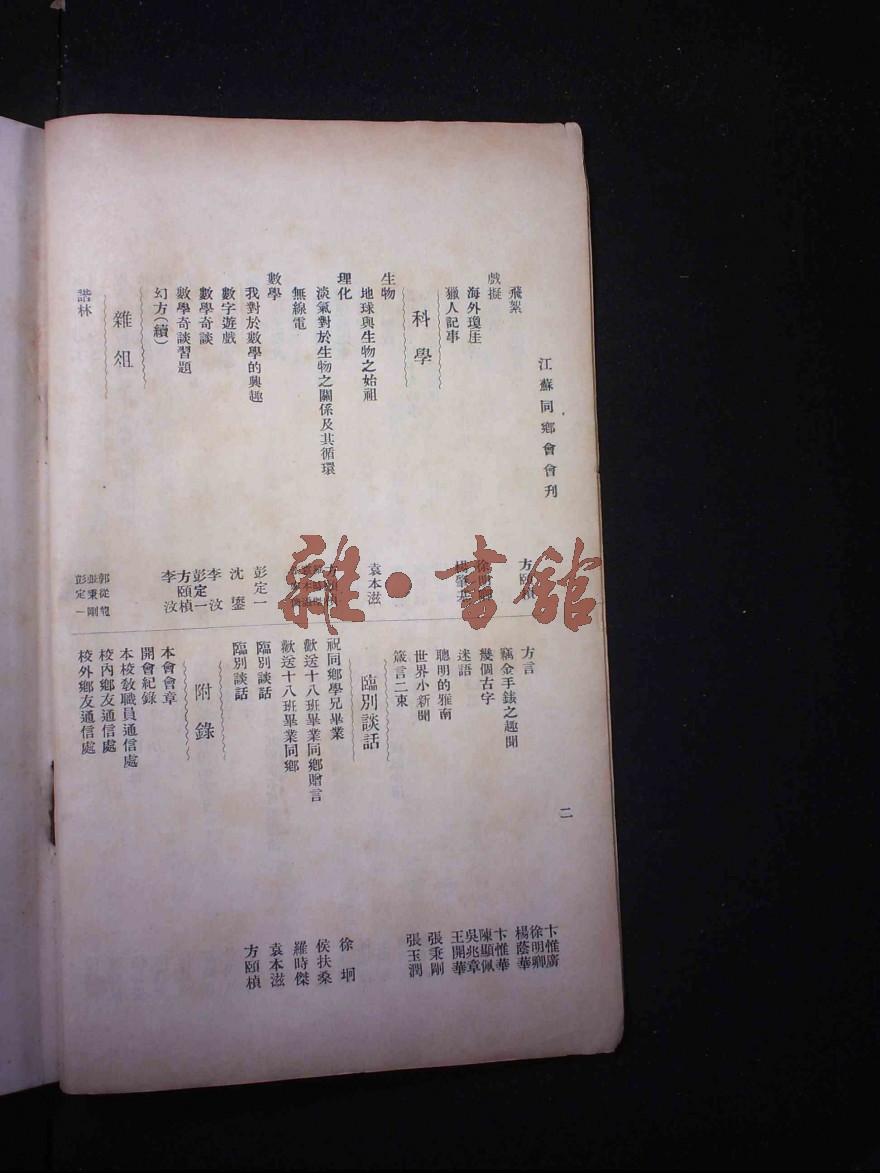 江蘇同鄉會會刊
二
飛絮
方頤楨
戲擬
海外瓊崖
徐明卿
獵人記事
科學
生物
地球與生物之始祖
袁本滋
理化
淡氣對於生物之關係及其循環
無線電
數學
我對於數學的興趣
彭定一
數字遊戲
沈鎏
數學奇談
李汶
彭定一
數學奇談習題
方頤楨
幻方(續)
李汶
雜俎
諧林
郭從龍
張秉剛
彭定一
方言
卞惟廣
徐明卿
竊金手錶之趣聞
楊蔭華
幾個古字
卞惟華
陳顯佩
迷語
吳兆章
王開華
聰明的雅南
張秉剛
世界小新聞
張玉潤
箴言二束
臨別談話
祝同鄉學兄畢業
徐坰
歡送十八班畢業同鄉贈言
侯扶桑
歡送十八班畢業同鄉
羅時傑
臨別談話
袁本滋
臨別談話
方頤楨
附錄
本會會章
開會紀錄
本校教職員通信處
校內鄉友通信處
校外鄉友通信處
雜·書館